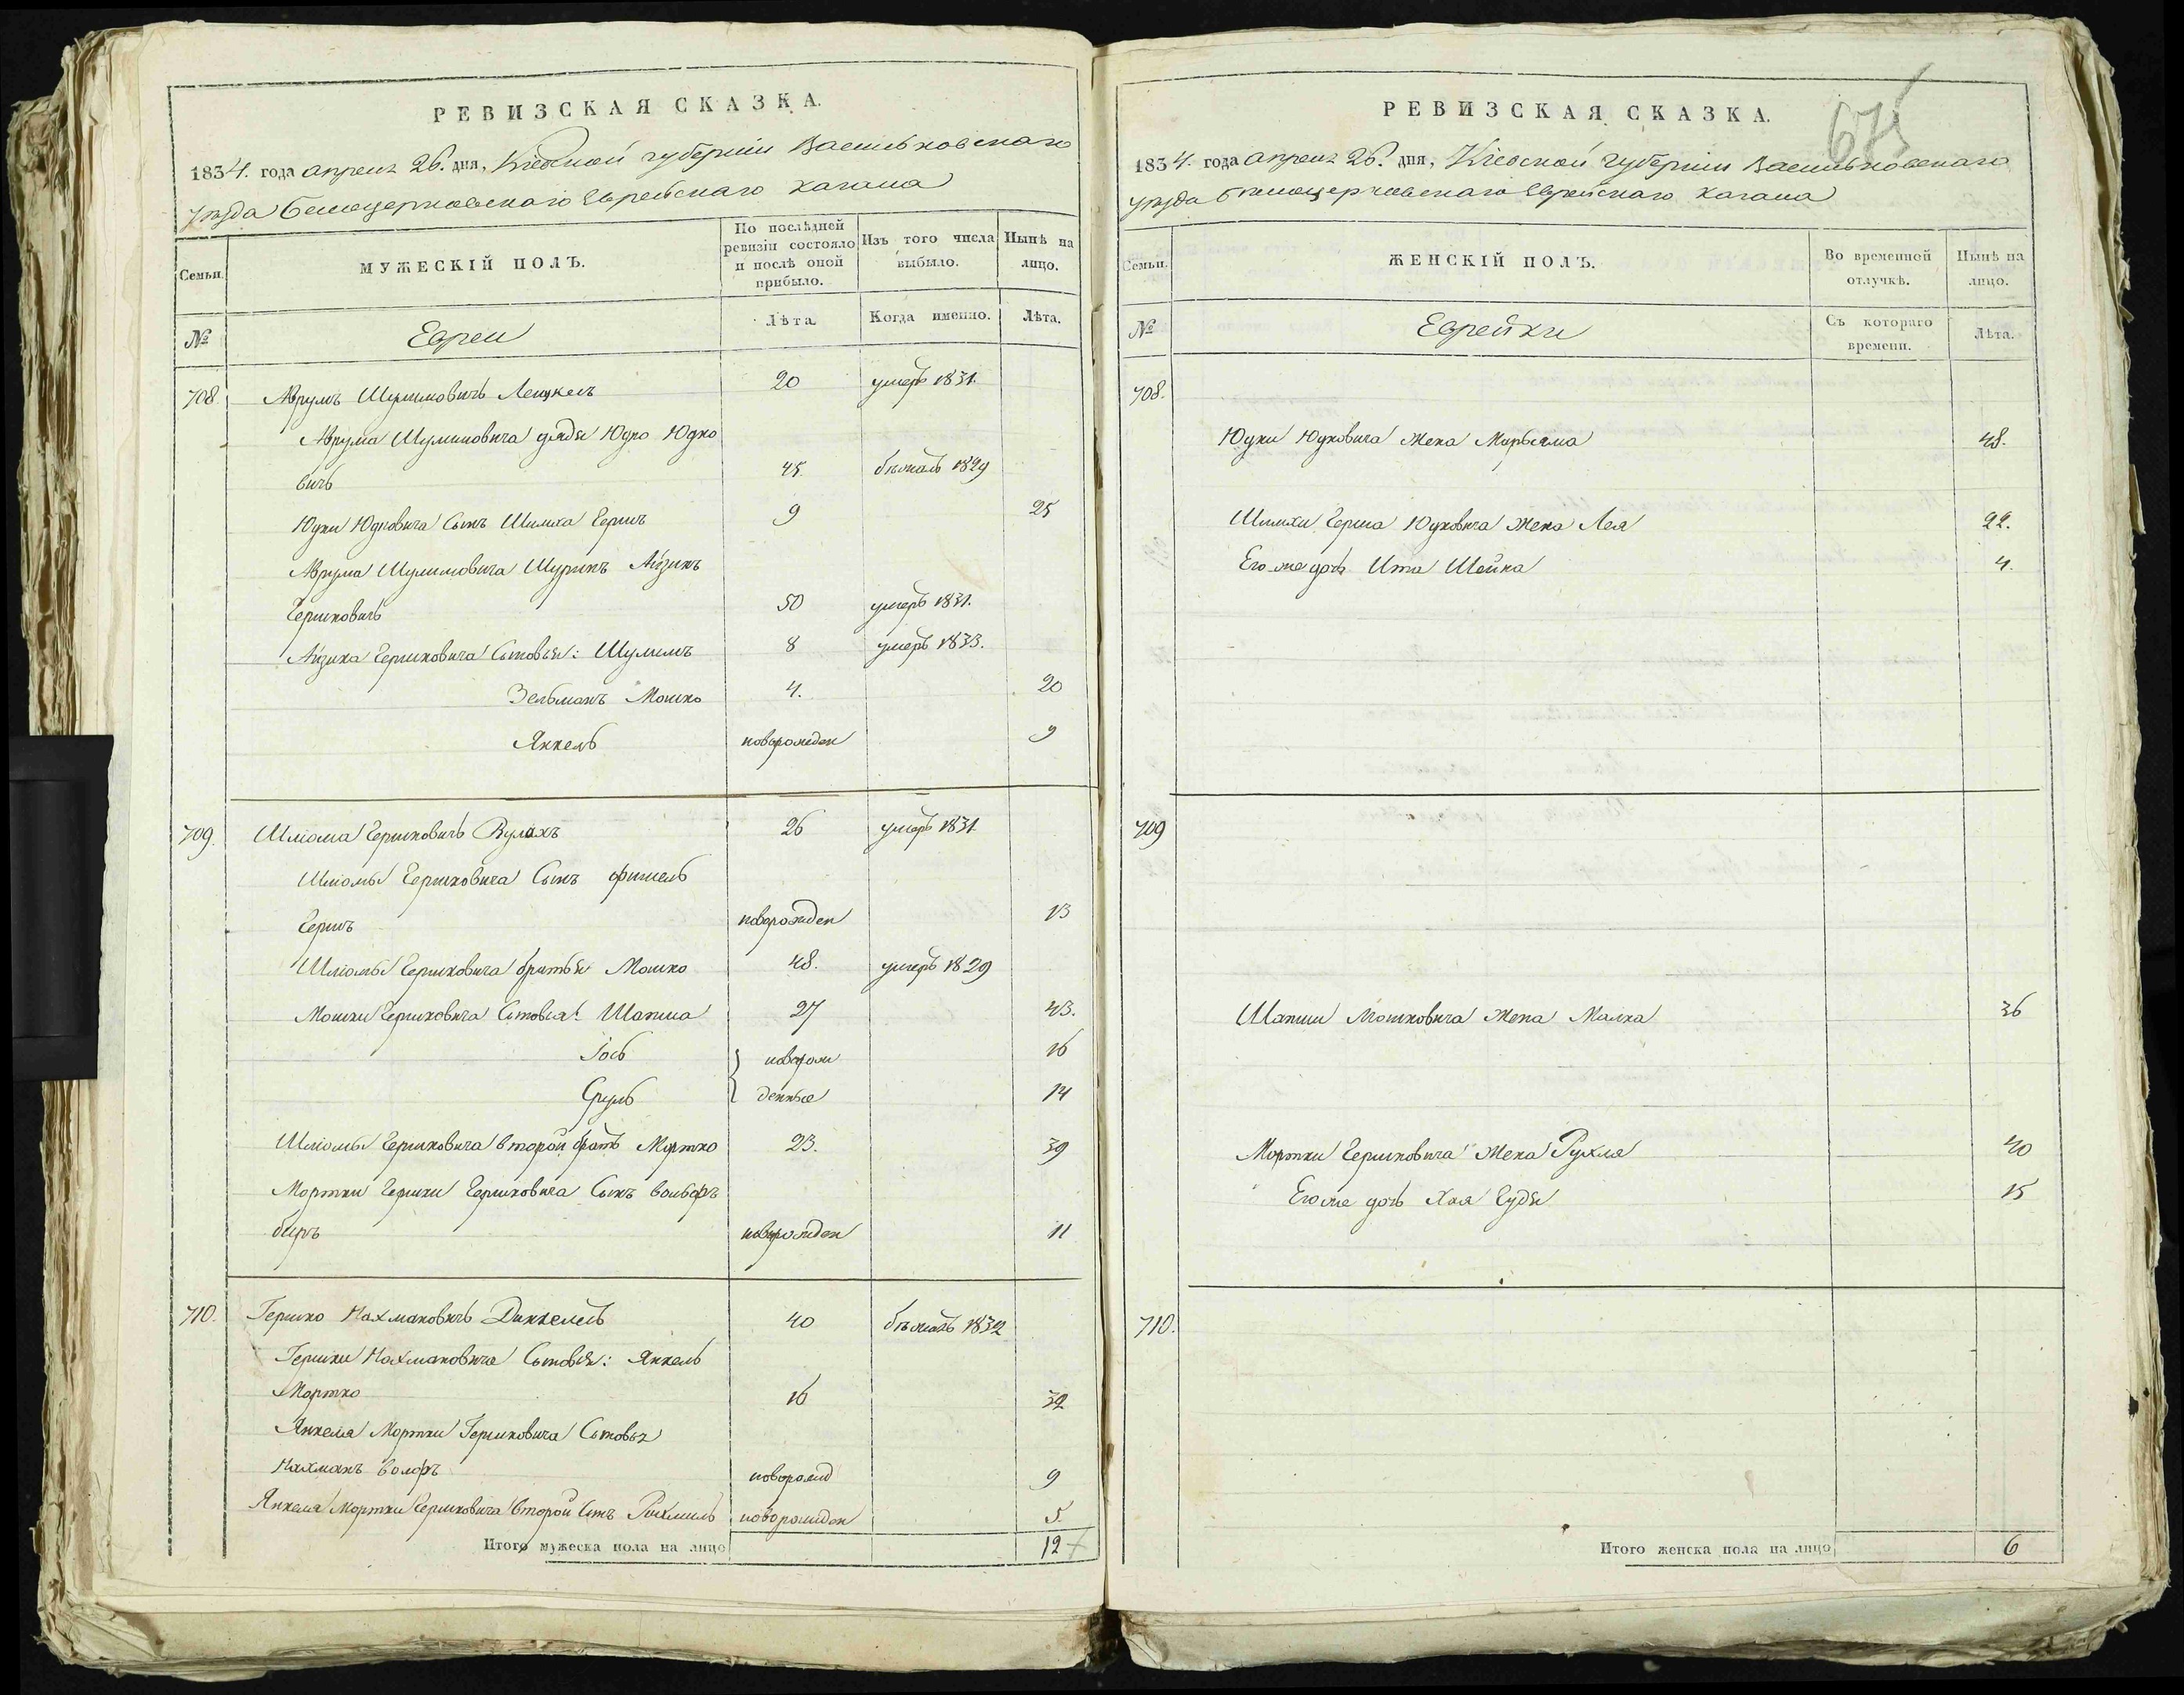 РЕВИЗСКАЯ СКАЗКА.
1834. года апреля 26. дня, Кіевской губерніи Васильковскаго
уезда Белоцерковскаго Еврейскаго кагала
Семьи.
МУЖЕСКІЙ ПОЛЪ.
По послѣдней ревизіи состояло и послѣ оной прибыло.
Изъ того числа выбыло.
Нынѣ на лицо.
№
Евреи
Лѣта.
Когда именно.
Лѣта.
708. Аврумъ Шулимовичъ 20 умеръ 1831.
Аврума Шулимовича дядя Юдко Юдко
вичъ 45. бежалъ 1829
Юдки Юдковича Сынъ Шимха Гершъ 9 25
Аврума Шулимовича Шуринъ Айзикъ
Гершковичъ 50 умеръ 1831.
Айзика Гершковича Сыновья: Шулимъ 8 умеръ 1833.
Зельманъ Мошко 4. 20
Янкель новорожден 9
709. Шліома Гершковичъ Вулахъ 26 умеръ 1831
Шліомы Гершковича Сынъ Фишель
Гершъ новорожден 13
Шліомы Гершковича братья Мошко 48. умеръ 1829
Мошки Гершковича Сыновья: Шапша 27 43.
Іось новорож 16
Сруль денные 14
Шліомы Гершковича второй братъ Мортко 23. 39
Мортки Гершки Гершковича Сынъ Вольфъ
беръ новорожден 11
710. Гершко Нахмановичъ 40 бежалъ 1832
Гершки Нахмановича Сыновья: Янкель
Мортко 16 32
Янкеля Мортки Гершковича Сыновья
Нахманъ Волфъ новорожд 9
Янкеля Мортки Гершковича второй Сынъ новорожден 5.
Итого мужеска пола на лицо 12
675
РЕВИЗСКАЯ СКАЗКА.
1834. года апреля 26. дня, Кіевской губерніи Васильковскаго
уезда Белоцерковскаго Еврейскаго кагала
Семьи.
ЖЕНСКІЙ ПОЛЪ.
Во временной отлучкѣ.
Нынѣ на лицо.
№
Еврейки
Съ котораго времени.
Лѣта.
708.
Юдки Юдковича жена Марьяма 48.
Шимхи Герша Юдковича жена Лея 22.
Его же дочь Ита Шейна 4.
709
Шапши Мошковича жена Малка 36
Мортки Гершковича жена Рухля 40
Его же дочь Хая Гудя 15
710.
Итого женска пола на лицо 6